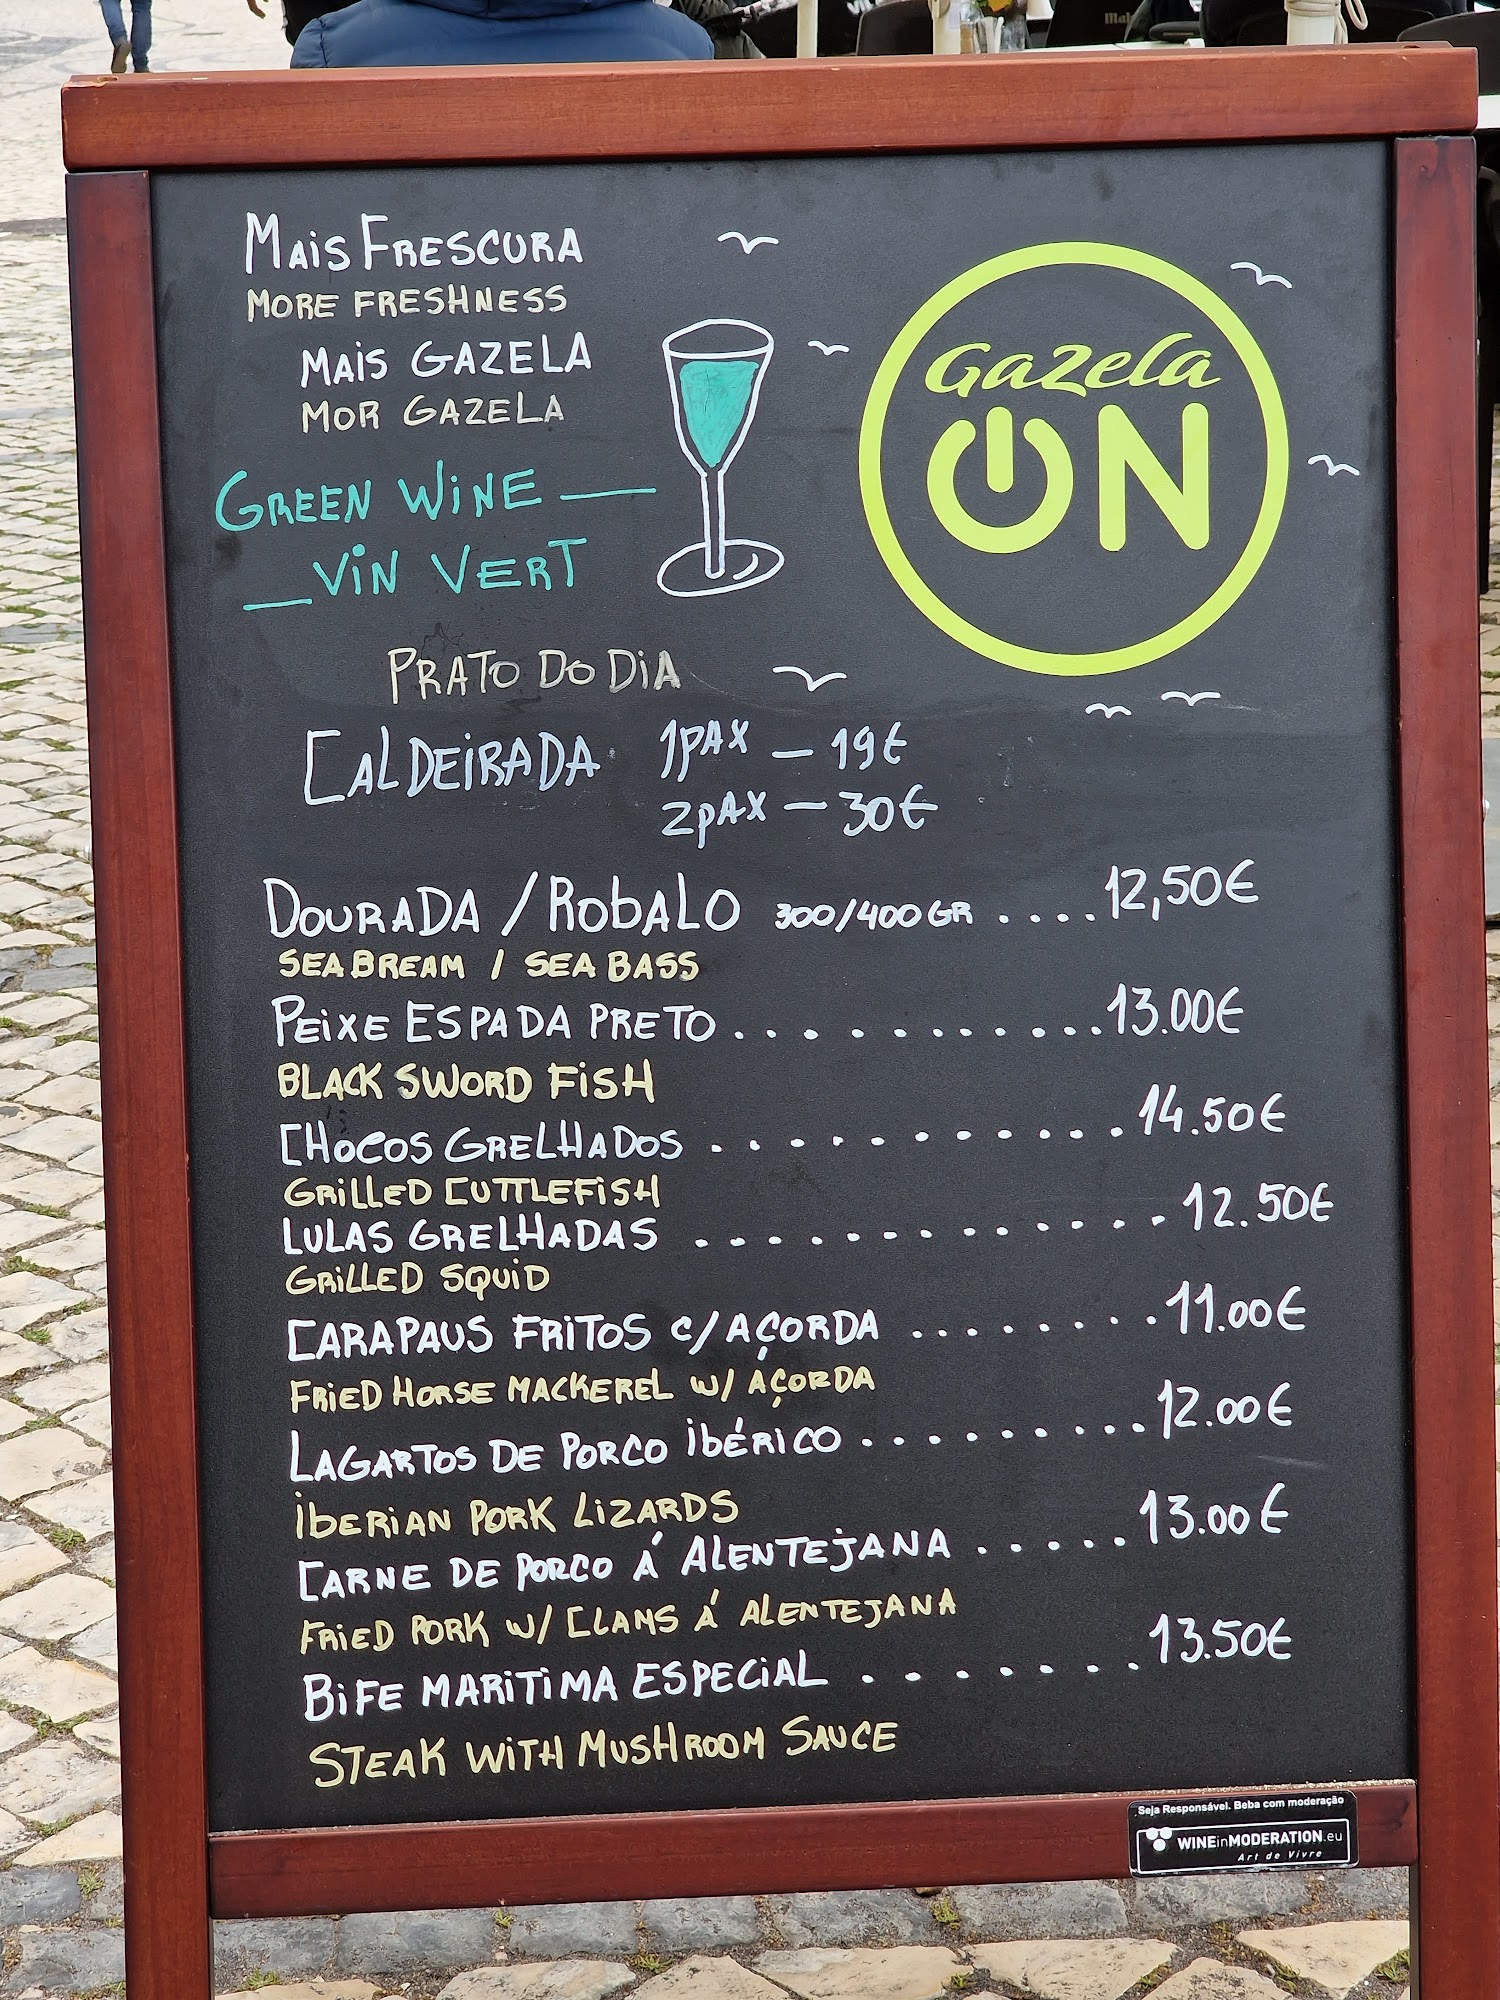 MAIS FRESCURA
MORE FRESHNESS
MAIS GAZELA
MOR GAZELA
GREEN WINE
VIN VERT
Gazela
ON
PRATO DO DIA
CALDEIRADA 1PAX - 19€
2PAX - 30€
DOURADA / ROBALO 300/400GR .... 12,50€
SEA BREAM / SEA BASS
PEIXE ESPADA PRETO ........... 13.00€
BLACK SWORD FISH
CHOCOS GRELHADOS ........... 14.50€
GRILLED CUTTLEFISH
LULAS GRELHADAS ............ 12.50€
GRILLED SQUID
CARAPAUS FRITOS C/AÇORDA ........ 11.00€
FRIED HORSE MACKEREL W/ AÇORDA
LAGARTOS DE PORCO IBÉRICO ......... 12.00€
IBERIAN PORK LIZARDS
CARNE DE PORCO Á ALENTEJANA ..... 13.00€
FRIED PORK W/ CLAMS Á ALENTEJANA
BIFE MARITIMA ESPECIAL ....... 13.50€
STEAK WITH MUSHROOM SAUCE
Seja Responsável. Beba com moderação
WINEinMODERATION.eu
Art de Vivre